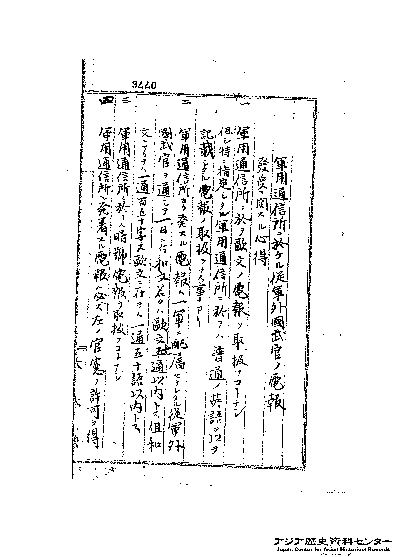 0776
軍用通信所ニ於ケル從軍外國武官ノ電報
發受ニ関スル心得
一
軍用通信所ニ於テ欧文ノ電報ヲ取扱フコトナシ
但シ特ニ指定シタル軍用通信所ニ於テハ普通ノ英語ヲ以テ
記載シタル電報ノ取扱ヲナス事アリ
二
軍用通信所ヨリ発スル電報ハ一軍ニ配属セラレタル從軍外
國武官ヲ通シテ一日ニ付和文若クハ欧文五通以内トス但和
文ニアリテハ一通百五十字欧文ニ在テハ一通五十語以内トス
三
軍用通信所ニ於テハ暗號電報ヲ取扱フコトナシ
四
軍用通信所ニ発着スル電報ハ必ス左ノ官憲ノ許可ヲ得
大本營
アジア歴史資料センター
Japan Center for Asian Historical Records